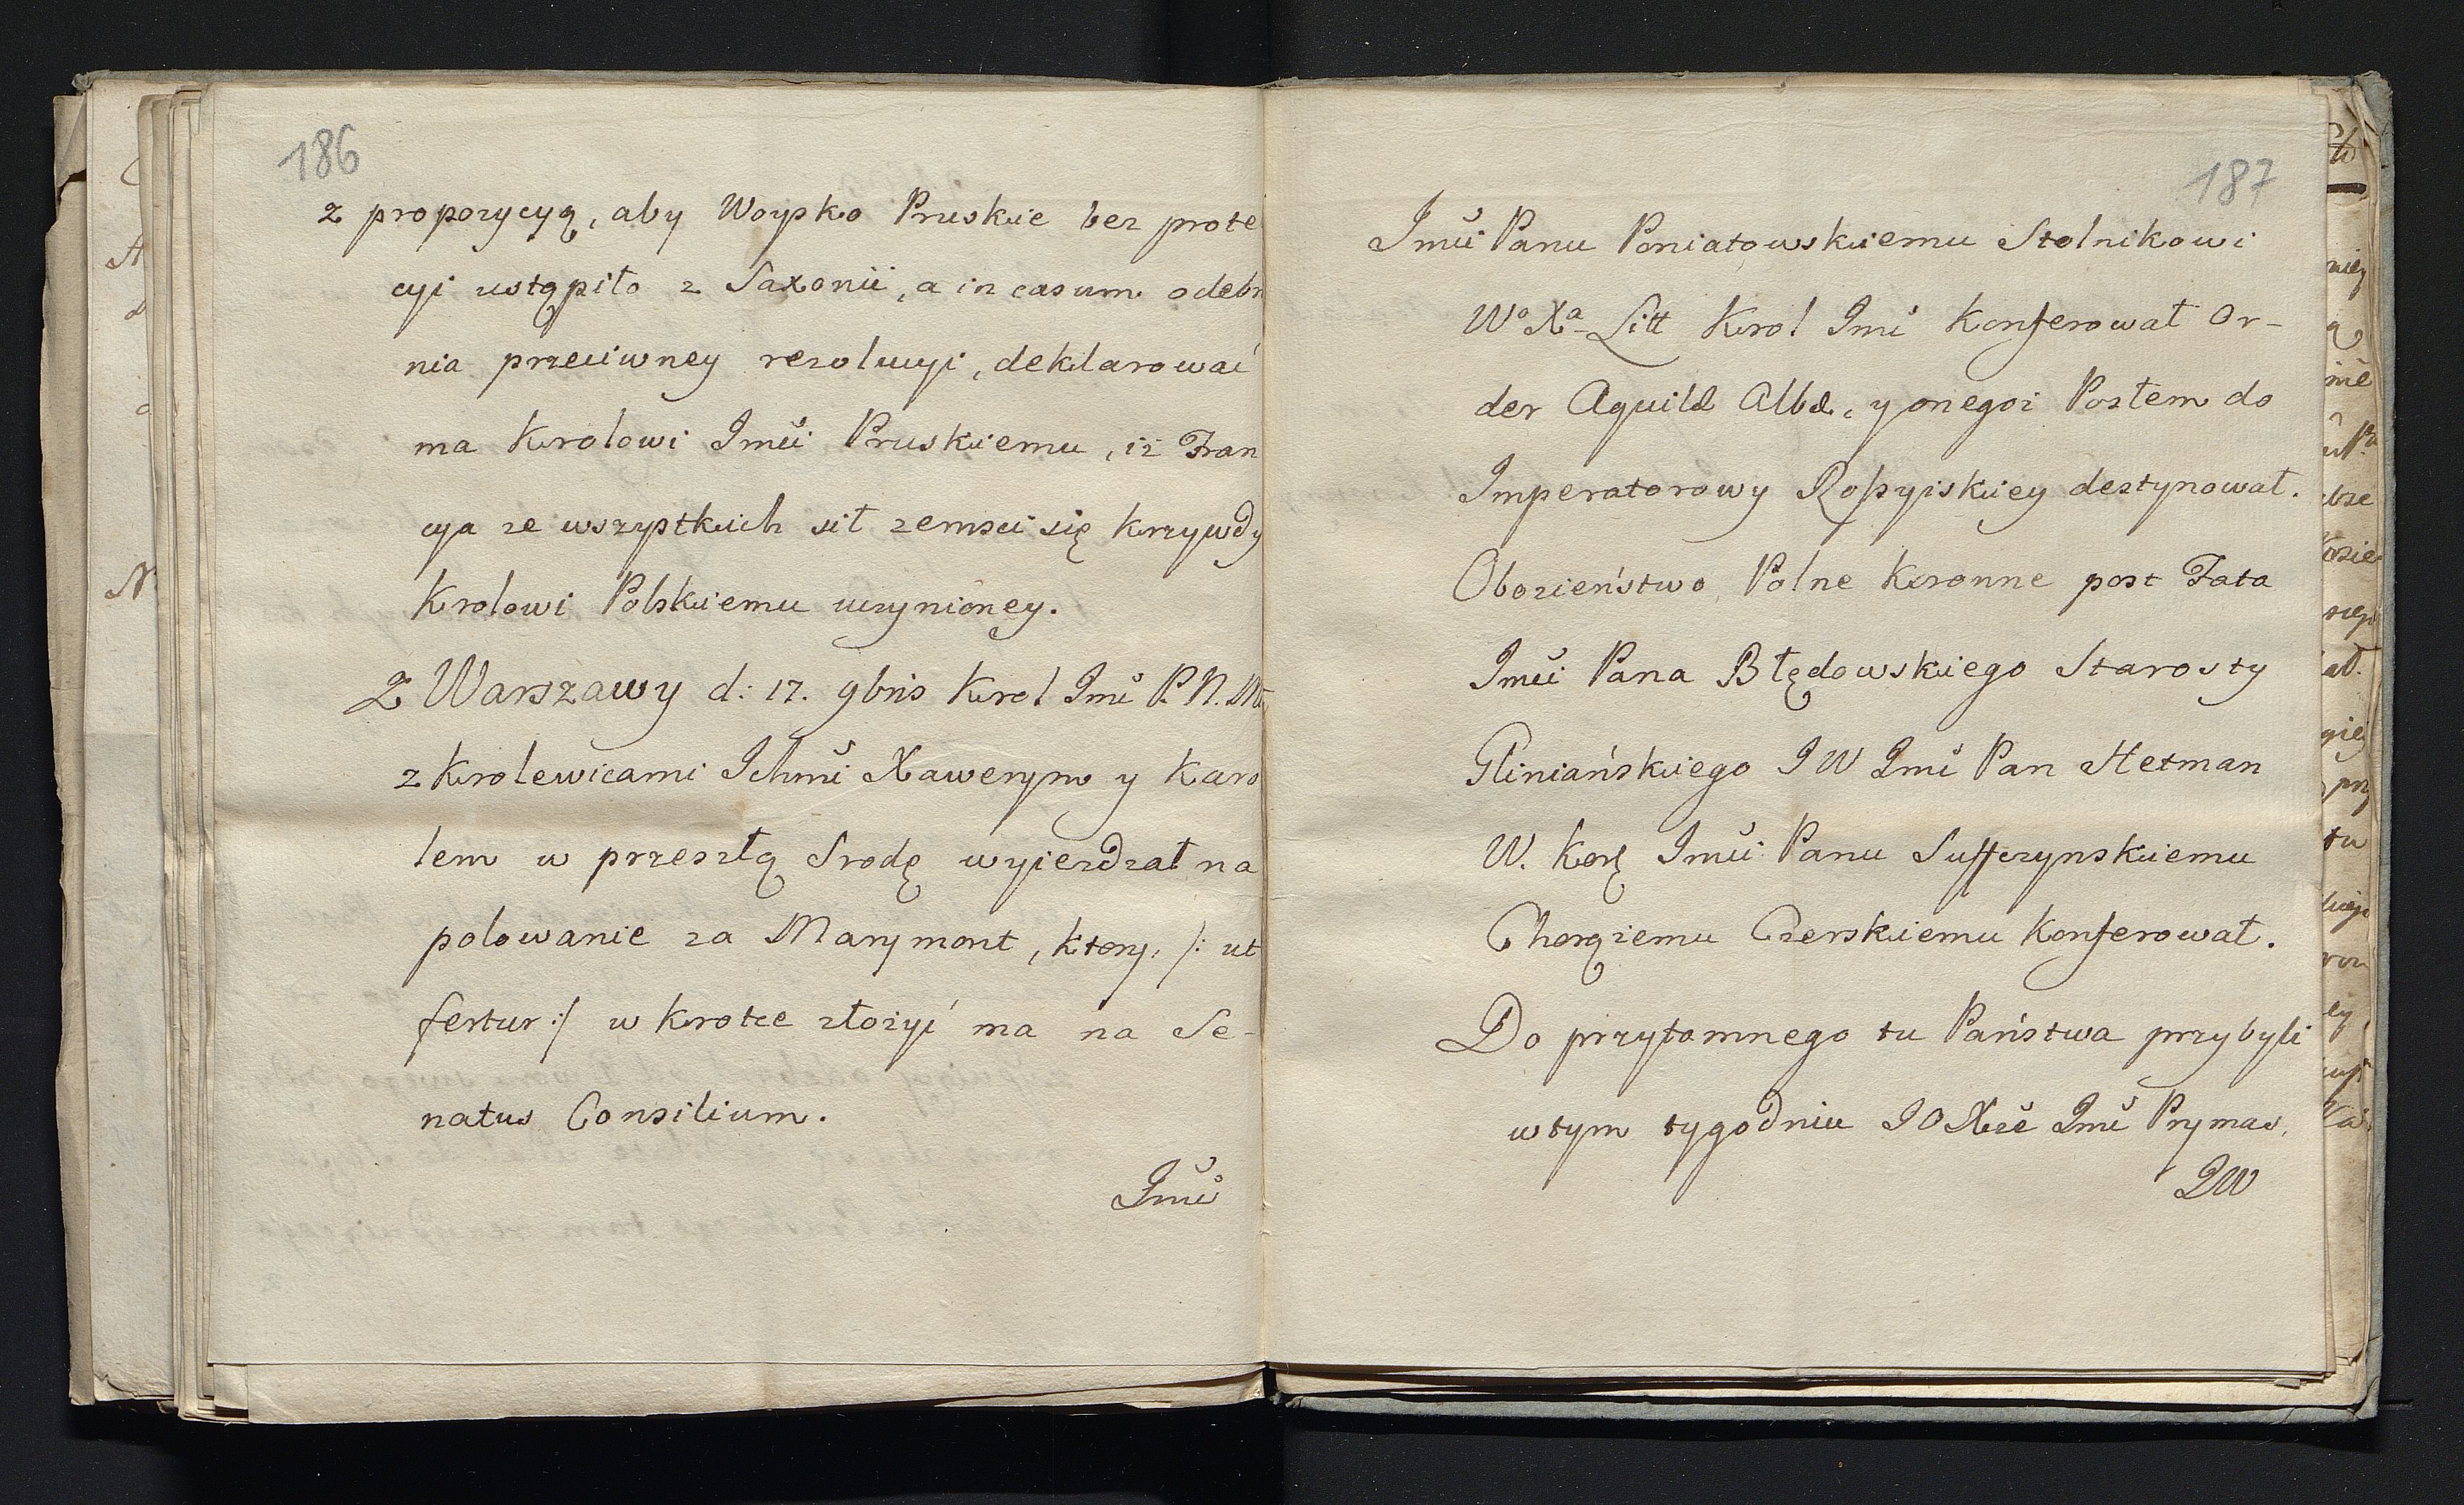 186
z propozycyą, aby Woysko Pruskie bez prote
cyi ustąpiło z Saxonii, a in casum odebr
nia przeciwney rezolucyi, deklarować
ma Krolowi Jmći Pruskiemu, iż Fran
cya ze wszystkich sił zemści się krzywdy
Krolowi Polskiemu uczynioney.
Z Warszawy d: 17. 9bris Krol Jmć P. N. Mł
z Krolewicami Ichmć Xawerym y Karo
lem w przeszłą Srodę wyiezdzał na
polowanie za Marymont, ktory, /: ut
fertur :/ w krotce złożyć ma na Se-
natus Consilium.
Jmći
187
Jmći Panu Poniatowskiemu Stolnikowi
Wº Xª Litt Krol Jmć konferował Or-
der Aquilæ Albæ, y onegoż Posłem do
Imperatorowy Rossyiskiey destynował.
Obozieństwo Polne Koronne post Fata
Jmći Pana Błędowskiego Starosty
Gliniańskiego JW Jmć Pan Hetman
W. Kor̃ Jmći Panu Suffczynskiemu
Chorążemu Czerskiemu konferował.
Do przytomnego tu Państwa przybyli
w tym tygodniu JO Xże Jmć Prymas,
JW